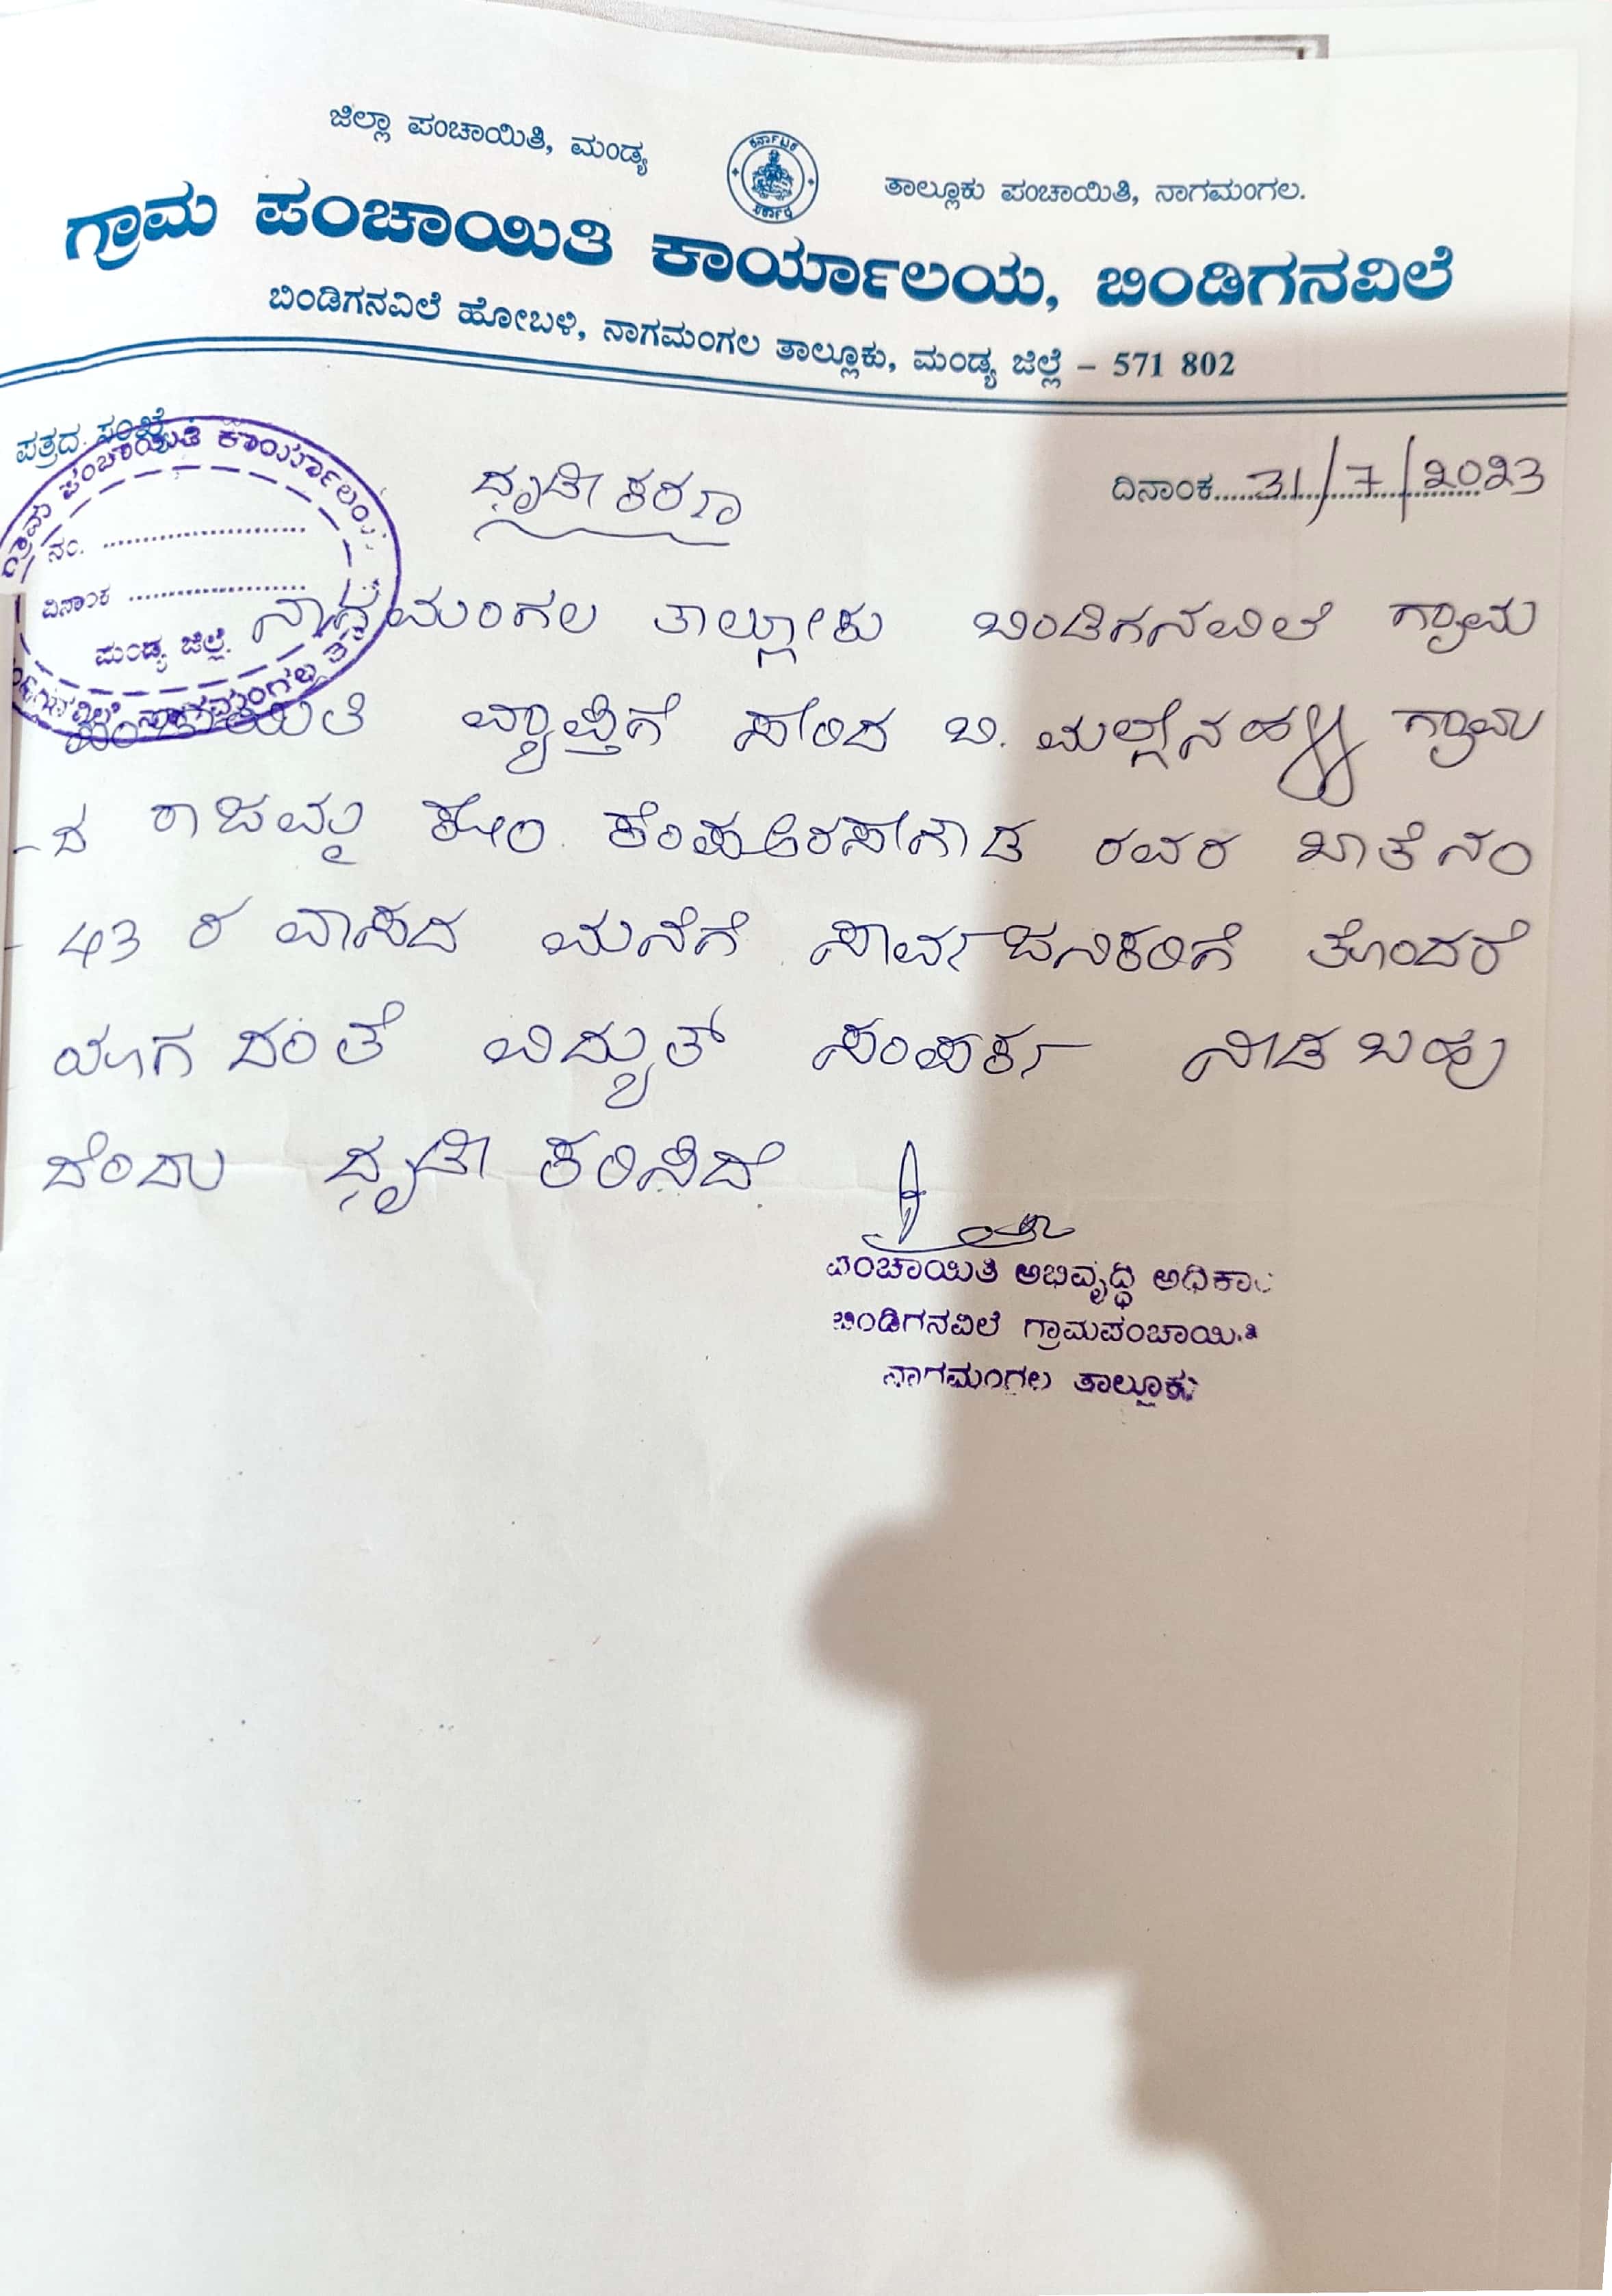 ಜಿಲ್ಲಾ ಪಂಚಾಯಿತಿ, ಮಂಡ್ಯ
ಕರ್ನಾಟಕ ಸರ್ಕಾರ
ತಾಲ್ಲೂಕು ಪಂಚಾಯಿತಿ, ನಾಗಮಂಗಲ.
ಗ್ರಾಮ ಪಂಚಾಯಿತಿ ಕಾರ್ಯಾಲಯ, ಬಿಂಡಿಗನವಿಲೆ
ಬಿಂಡಿಗನವಿಲೆ ಹೋಬಳಿ, ನಾಗಮಂಗಲ ತಾಲ್ಲೂಕು, ಮಂಡ್ಯ ಜಿಲ್ಲೆ – 571 802
ಪತ್ರದ ಸಂಖ್ಯೆ
ದಿನಾಂಕ 31/7/2023
ಪಂಚಾಯಿತಿ ಕಾರ್ಯಾಲಯ
ನಂ.
ದಿನಾಂಕ
ಮಂಡ್ಯ ಜಿಲ್ಲೆ.
ಧೃಡೀಕರಣ
ನಾಗಮಂಗಲ ತಾಲ್ಲೂಕು ಬಿಂಡಿಗನವಿಲೆ ಗ್ರಾಮ
ಪಂಚಾಯಿತಿ ವ್ಯಾಪ್ತಿಗೆ ಸೇರಿದ ಬಿ. ಮಲ್ಲೇನಹಳ್ಳಿ ಗ್ರಾಮ
-ದ ರಾಜಮ್ಮ ಕೋಂ ಕೆಂಪಅರಸೇಗೌಡ ರವರ ಖಾತೆ ನಂ
- 43 ರ ವಾಸದ ಮನೆಗೆ ಸಾರ್ವಜನಿಕರಿಗೆ ತೊಂದರೆ
ಯಾಗದಂತೆ ವಿದ್ಯುತ್ ಸಂಪರ್ಕ ನೀಡಬಹು
ದೆಂದು ಧೃಡೀಕರಿಸಿದೆ
ಪಂಚಾಯಿತಿ ಅಭಿವೃದ್ಧಿ ಅಧಿಕಾರಿ
ಬಿಂಡಿಗನವಿಲೆ ಗ್ರಾಮಪಂಚಾಯಿತಿ
ನಾಗಮಂಗಲ ತಾಲ್ಲೂಕು